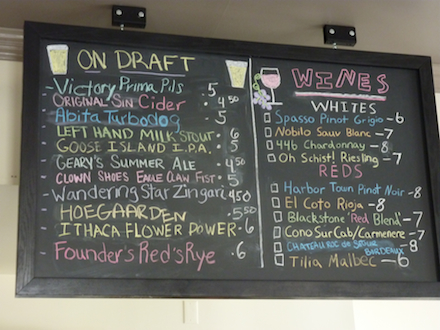 ON DRAFT
- Victory Prima Pils . 5
- ORIGINAL SIN Cider . 4.50
- Abita Turbodog . 5
- LEFT HAND MILK STOUT . 6
- GOOSE ISLAND I.P.A. . 5
- GEARY'S SUMMER ALE . 4.50
- CLOWN SHOES EAGLE CLAW FIST . 5
- Wandering Star Zingari 4.50
- HOEGAARDEN . 5.50
- ITHACA FLOWER POWER . 6
- Founder's Red's Rye . 6
WINES
WHITES
Spasso Pinot Grigio - 6
Nobilo Sauv Blanc - 7
446 Chardonnay - 8
Oh Schist! Riesling - 7
REDS
Harbor Town Pinot Noir - 8
El Coto Rioja - 8
Blackstone 'Red Blend' - 7
Cono Sur Cab/Carmenere - 7
BORDEAUX - 8
Tilia Malbec - 6